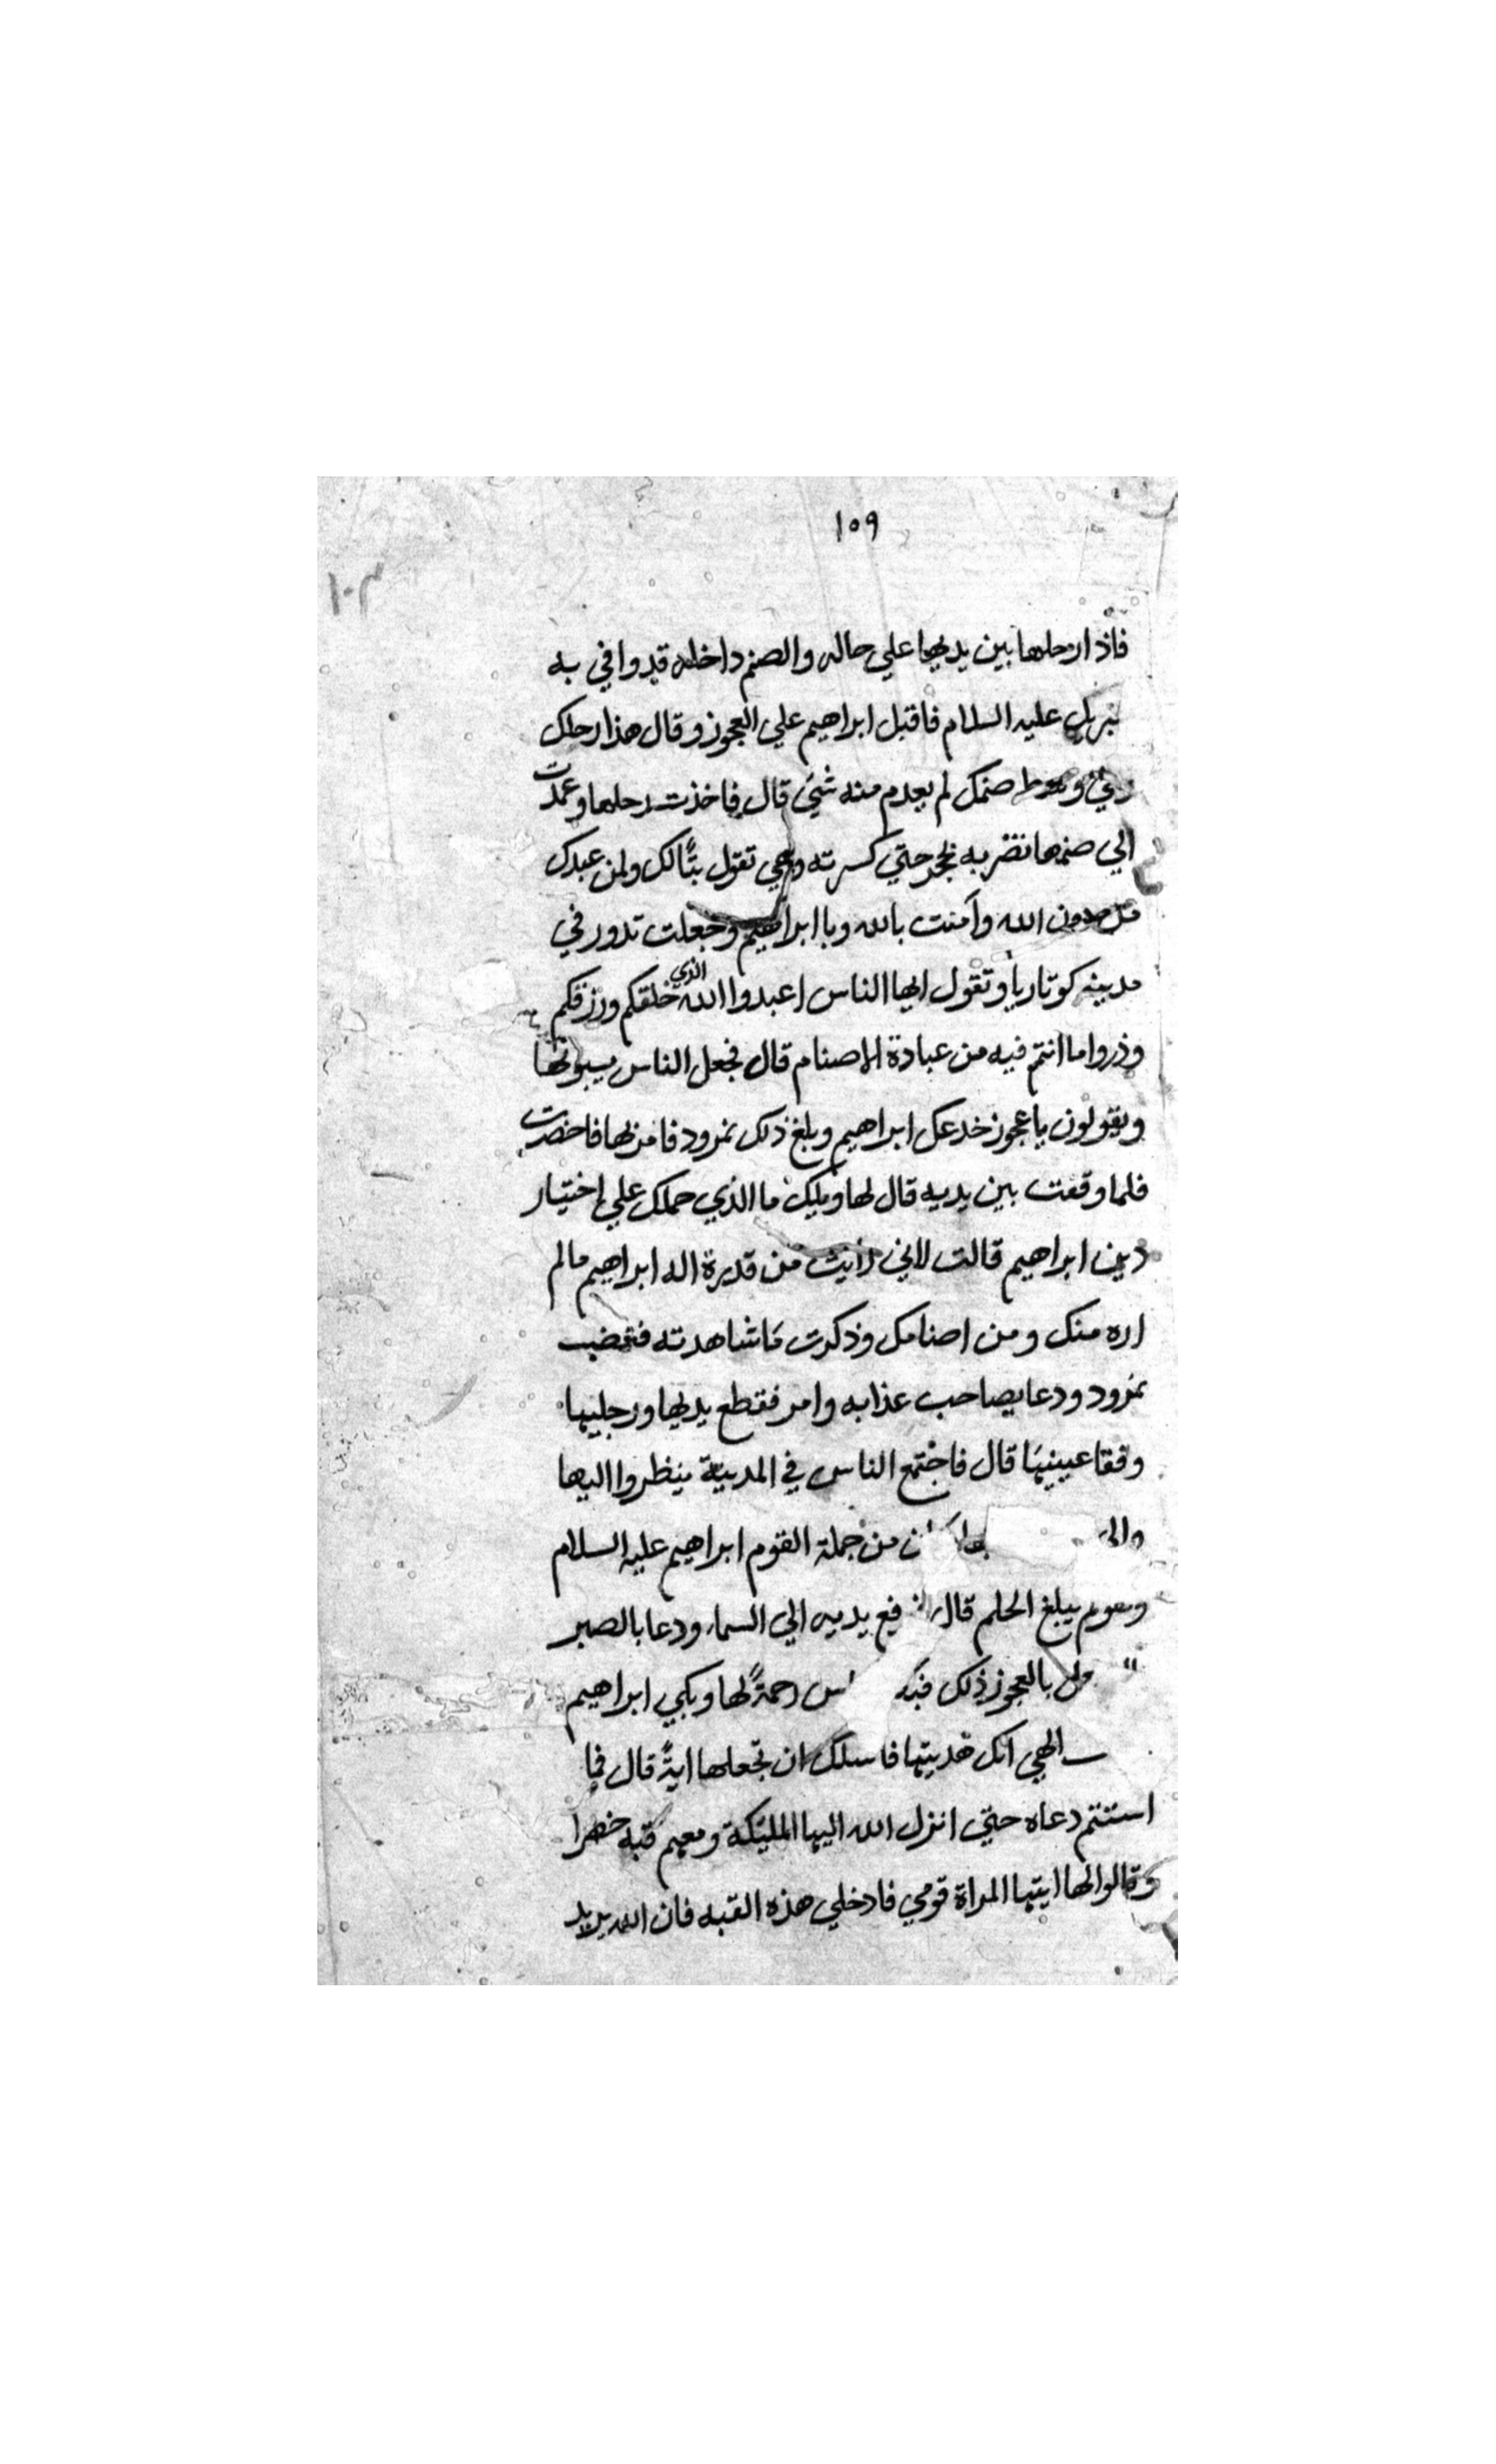 ١٥٩
١٠٣
فاذا رحلها بين يديها علي حاله والصنم داخله قد وافي به
جبريل عليه السلام فاقبل ابراهيم علي العجوز وقال هذا رحلك
صنمك لم يعدم منه شيء قال فاخذت رحلها وعمدت
الي صنمها تضربه بحجر حتي كسرته وهي تقول تبًا لك ولمن عبدك
من دون الله وآمنت بالله وبابراهيم وجعلت تدور في
مدينه كوثاريا وتقول ايها الناس اعبدوا الله الذي خلقكم ورزقكم
وذروا ما انتم فيه من عبادة الاصنام قال فجعل الناس يسبونها
ويقولون يا عجوز خدعك ابراهيم وبلغ ذلك نمرود فامر بها فاحضرت
فلما وقفت بين يديه قال لها ويلك ما الذي حملك علي اختيار
دين ابراهيم قالت لاني رايت من قدرة اله ابراهيم ما لم
اره منك ومن اصنامك وذكرت ما شاهدته فغضب
نمرود ودعا بصاحب عذابه وامر فقطع يديها ورجليها
وفقا عينيها قال فاجتمع الناس في المدينة ينظروا اليها
من جملة القوم ابراهيم عليه السلام
ولم يبلغ الحلم قال يديه الي السماء ودعا بالصبر
بالعجوز ذلك رحمةً لها وبكي ابراهيم
الهي انك هديتها فاسلك ان تجعلها ايةً قال فما
استتم دعاه حتي انزل الله اليها المليكة ومعهم قبه خضرا
وقالوا لها ايتها المراة قومي فادخلي هذه القبه فان الله يريد